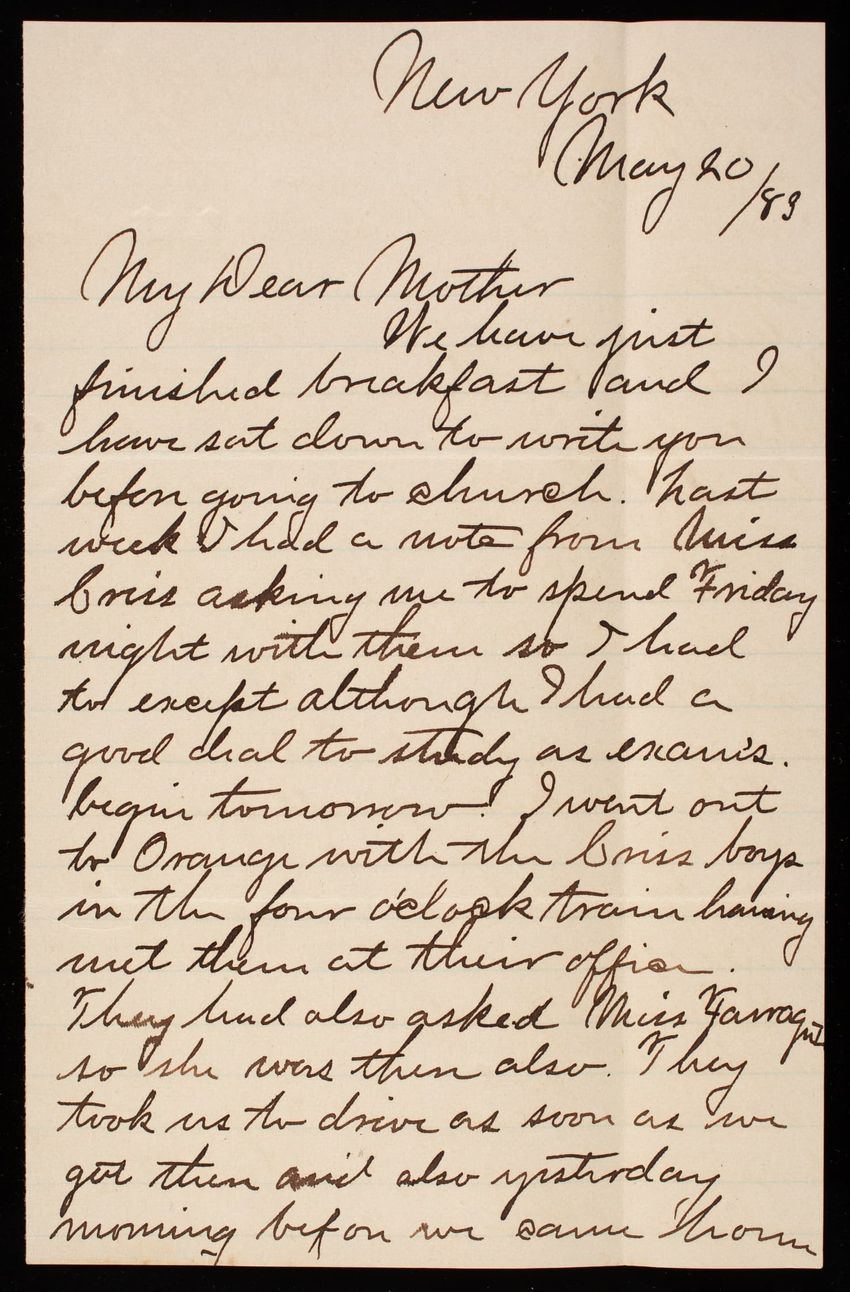 New York
May 20/83
My Dear Mother
We have just
finished breakfast and I
have sat down to write you
before going to church. Last
week I had a note from Miss
Criss asking me to spend Friday
night with them so I had
to except although I had a
good deal to study as exam's.
begin tomorrow. I went out
to Orange with the Criss boys
in the four o'clock train having
met them at their office.
They had also asked Miss Farragut
so she was there also. They
took us to drive as soon as we
got there and also yesterday
morning before we came home